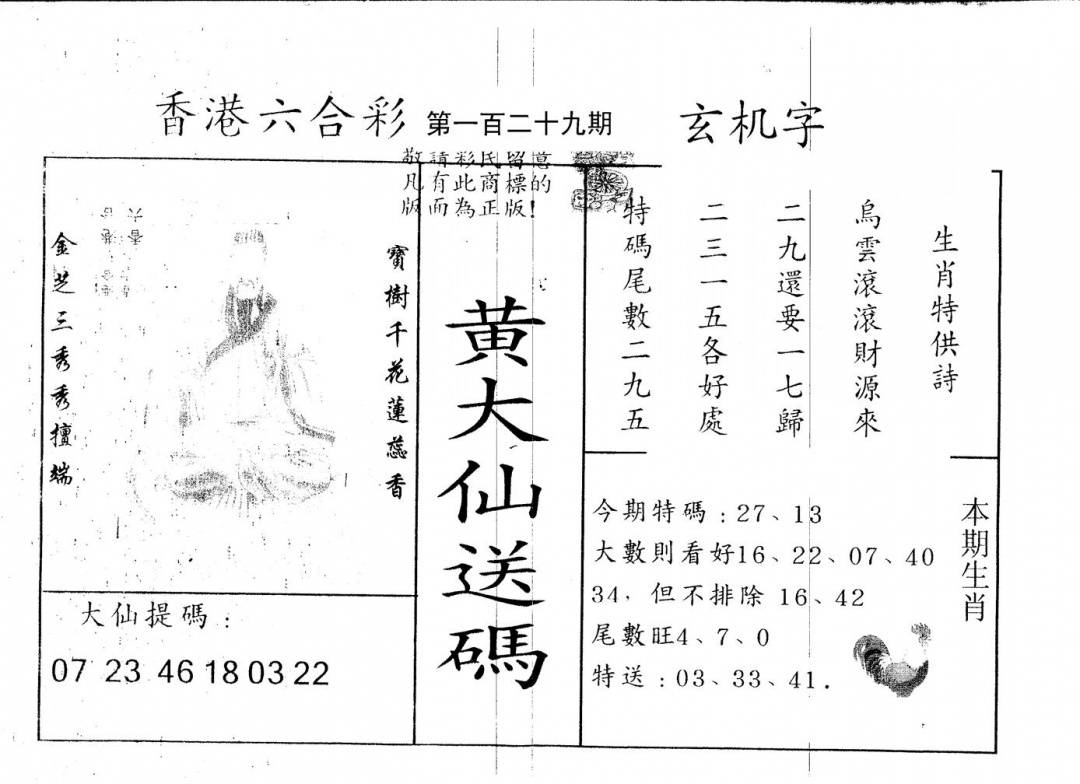 香港六合彩 第一百二十九期 玄机字
敬請彩民留意的
凡有此商標
版面為正版!
生肖特供詩
烏雲滾滾財源來
二九還要一七歸
二三一五各好處
特碼尾數二九五
黄大仙送碼
寶樹千花蓮蕊香
金芝三秀秀擅端
大仙提碼:
07 23 46 18 03 22
本期生肖
今期特碼:27、13
大數則看好16、22、07、40
34,但不排除 16、42
尾數旺4、7、0
特送:03、33、41.